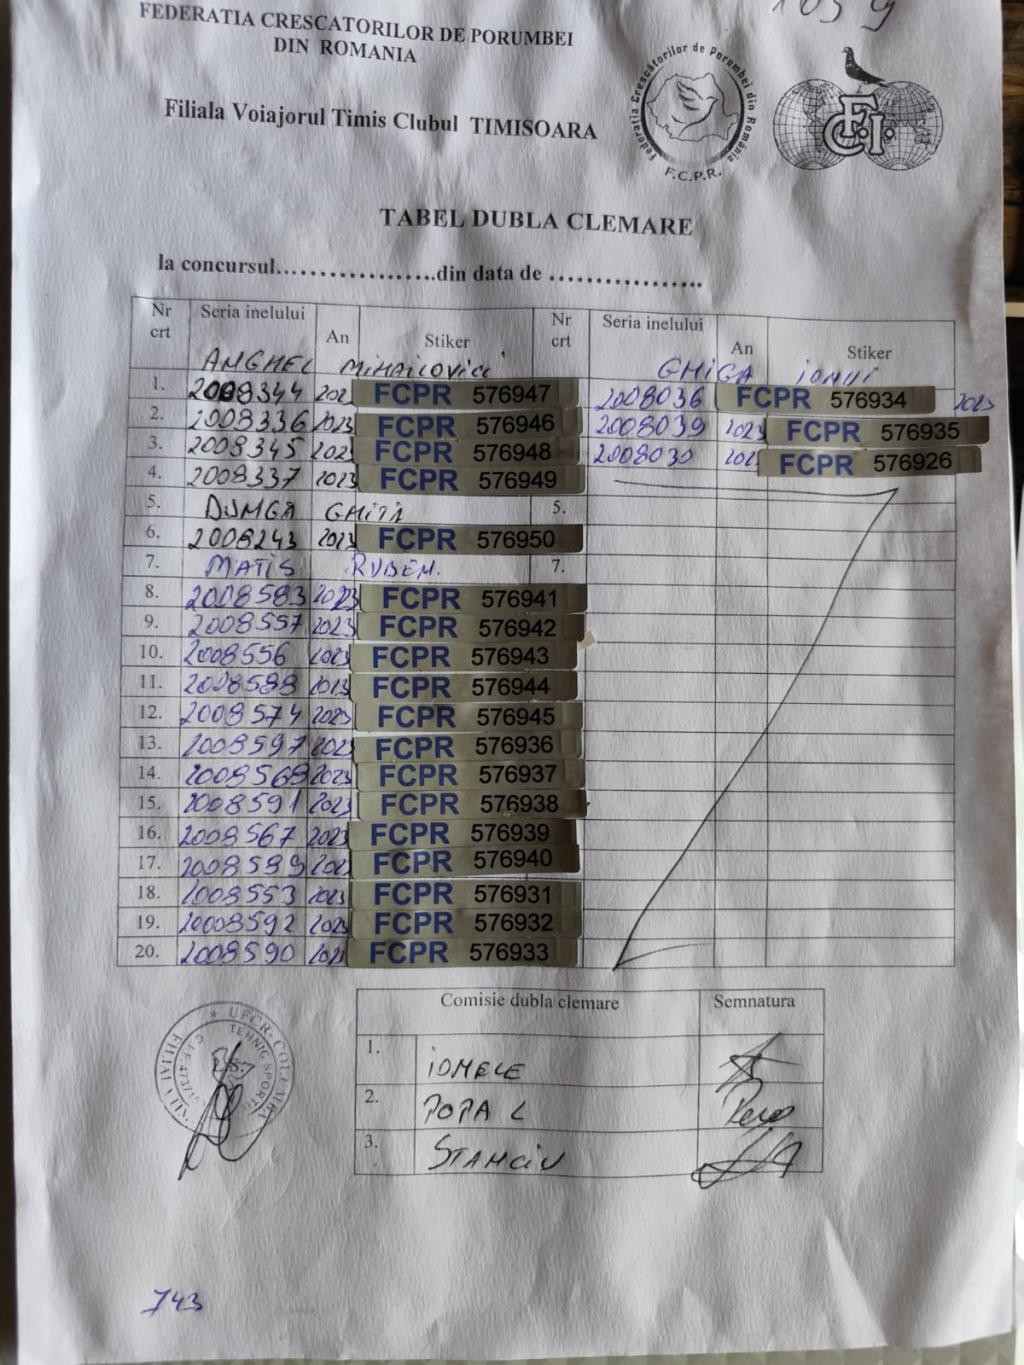 FEDERATIA CRESCATORILOR DE PORUMBEI
DIN ROMANIA
Filiala Voiajorul Timis Clubul TIMISOARA
Federatia Crescătorilor de Porumbei din România
F.C.P.R.
F.C.I.
TABEL DUBLA CLEMARE
la concursul..................din data de ..................
Nr crt Seria inelului An Stiker Nr crt Seria inelului An Stiker
ANGHEL MIHAILOVICI GHIGA IONUI
1. 2008344 202 FCPR 576947 2008036 FCPR 576934 2023
2. 2008336 2023 FCPR 576946 2008039 2023 FCPR 576935
3. 2008345 202 FCPR 576948 2008030 202 FCPR 576926
4. 2008337 2023 FCPR 576949
5. DUMGA GHITA 5.
6. 2008243 2023 FCPR 576950
7. MATIS RUBEN. 7.
8. 2008583 2023 FCPR 576941
9. 2008557 2023 FCPR 576942
10. 2008556 2023 FCPR 576943
11. 2008588 2023 FCPR 576944
12. 2008574 2023 FCPR 576945
13. 2008597 2023 FCPR 576936
14. 2008568 2023 FCPR 576937
15. 2008591 2023 FCPR 576938
16. 2008567 2023 FCPR 576939
17. 2008599 202 FCPR 576940
18. 2008553 2023 FCPR 576931
19. 20008592 2023 FCPR 576932
20. 2008590 202 FCPR 576933
Comisie dubla clemare Semnatura
1. IONELE
2. POPA L
3. STANCIU
743